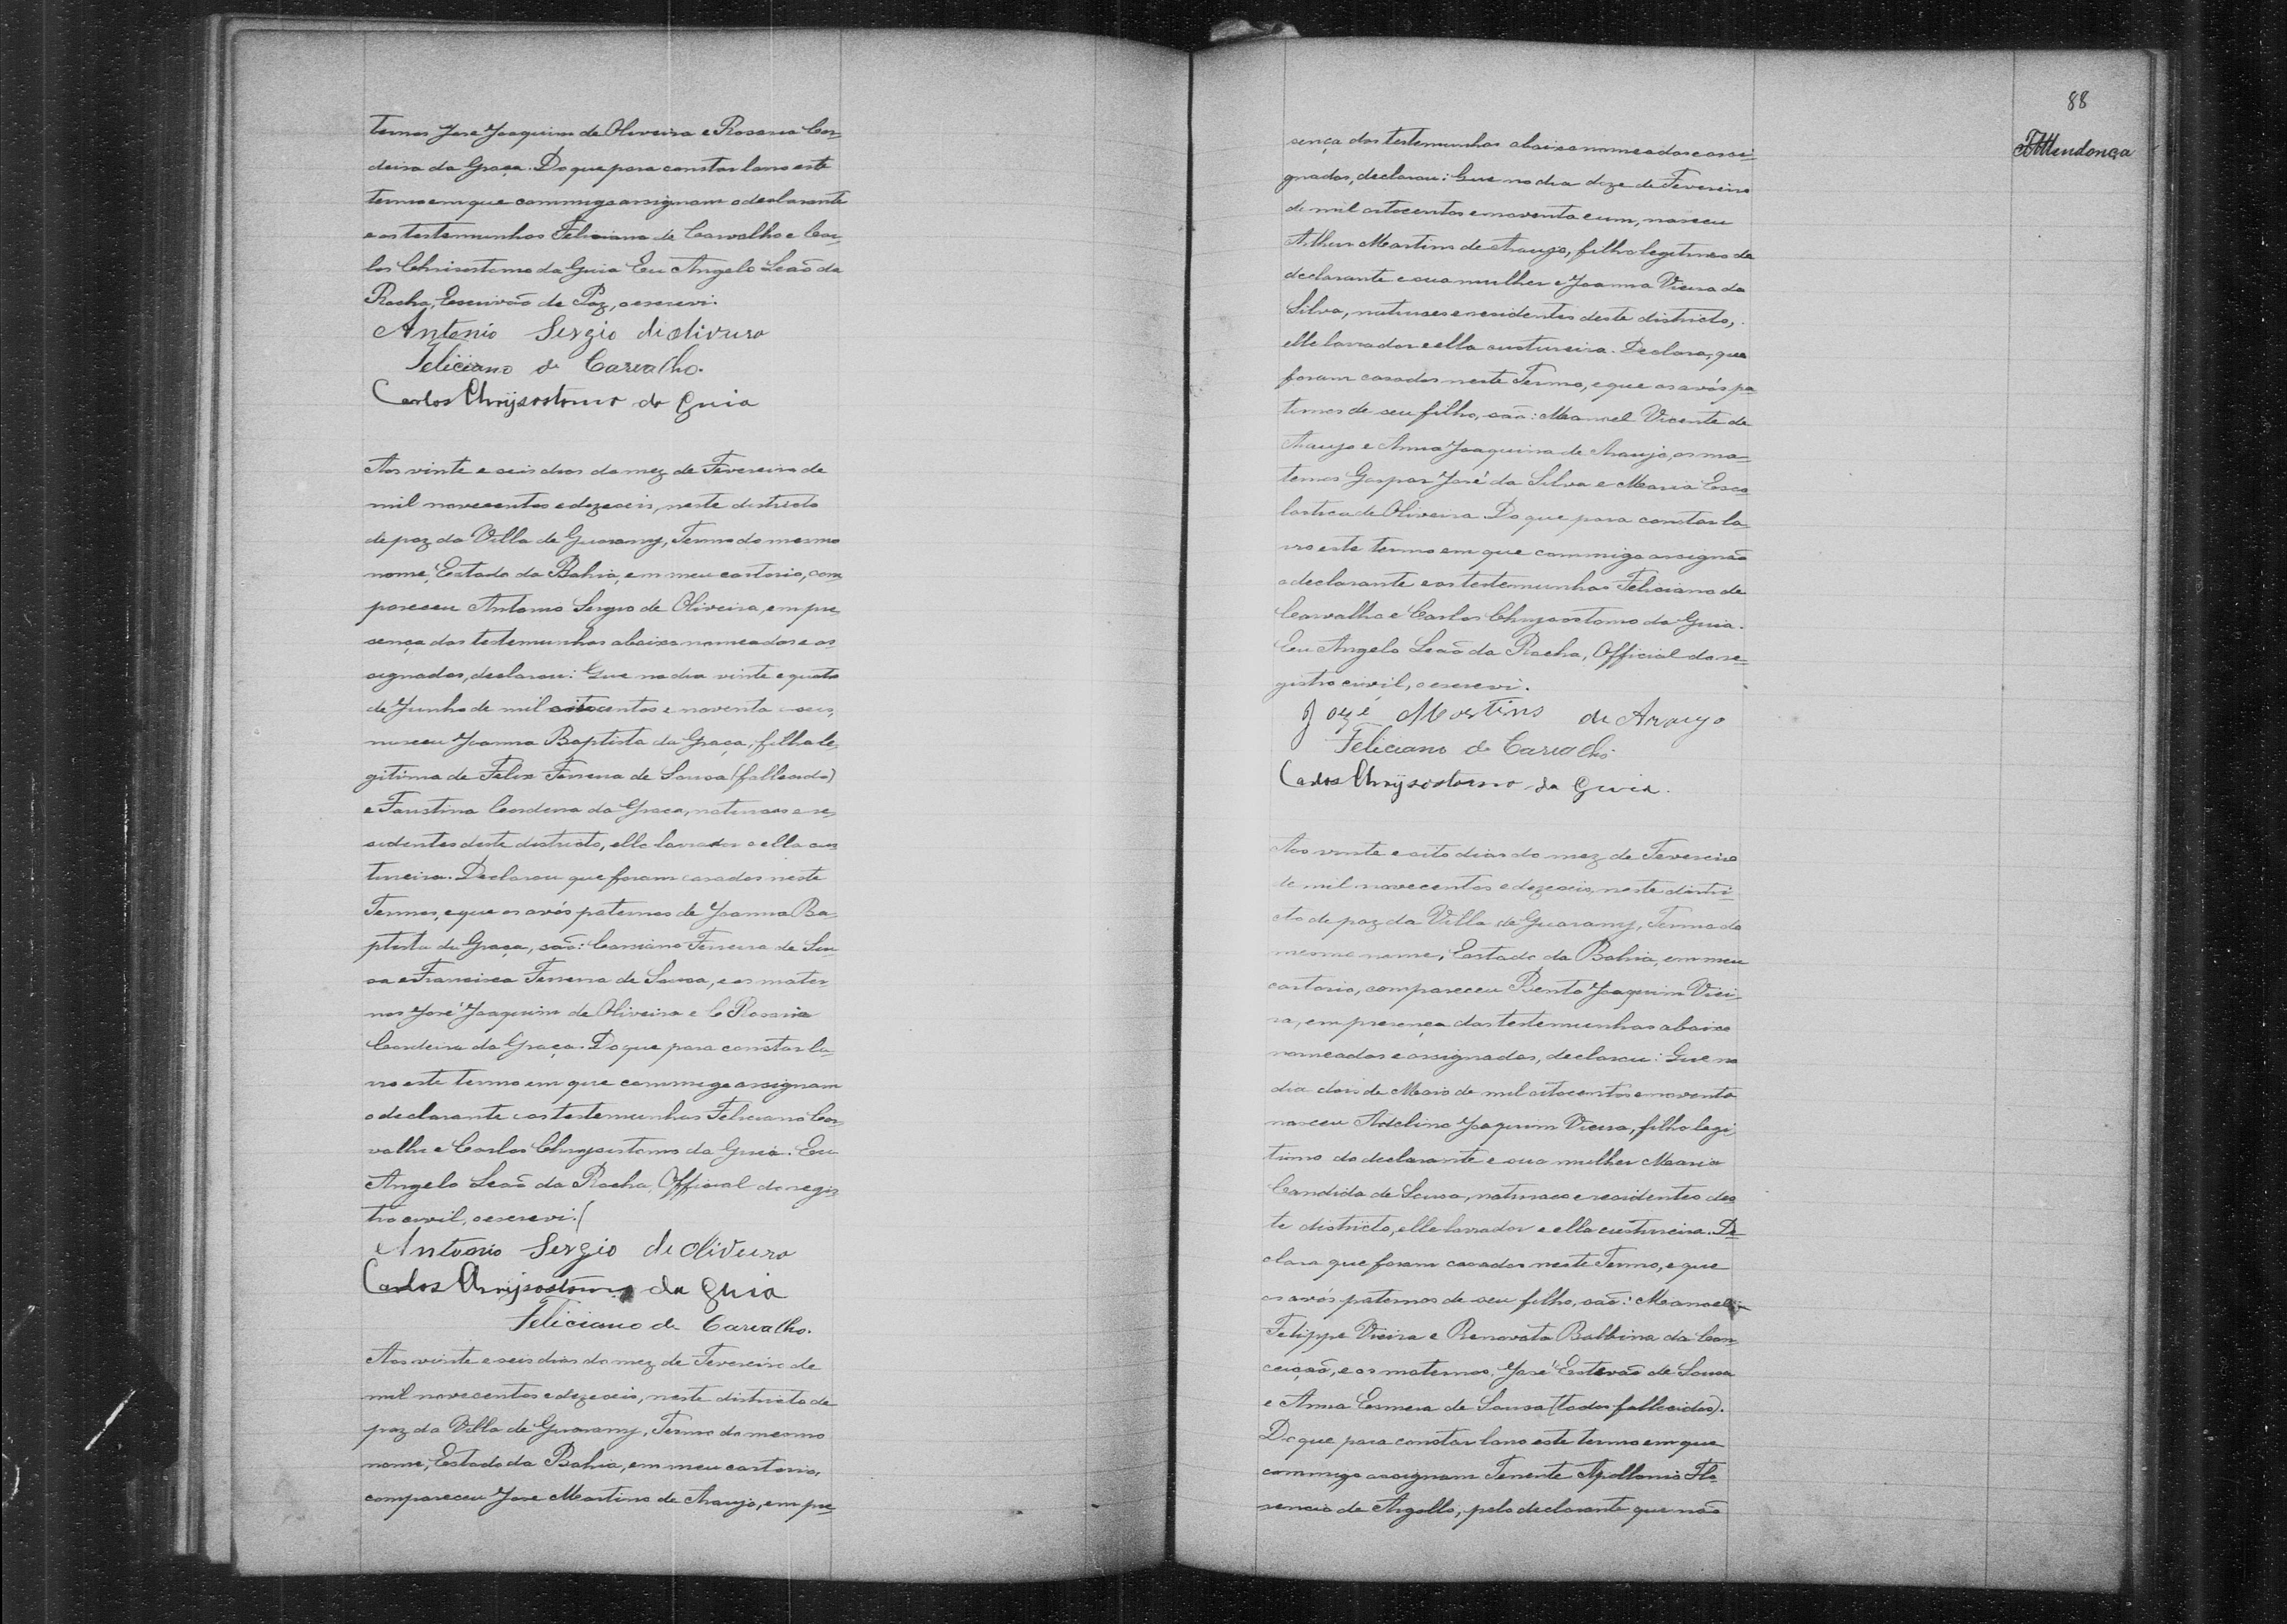 ternos José Joaquim de Oliveira e Rosaria Cor-
deira da Graça. Do que para constar lavro este
termo em que commigo assignam o declarante
e as testemunhas Feliciano de Carvalho e Car-
los Chrisostomo da Guia Eu Angelo Leão da
Rocha, Escrivão de Paz, o escrevi.
Antonio Sergio de oliveira
Feliciano de Carvalho.
Carlos Chrysostomo da Guia
Aos vinte e seis dias do mez de Fevereiro de
mil novecentos e dezeseis, neste districto
de paz da Villa de Guarany, Termo do mesmo
nome, Estado da Bahia, em meu cartorio, com
pareceu Antonio Sergio de Oliveira, em pre
sença das testemunhas abaixo nomeadas e as
signadas, declarou: Que no dia vinte e quatro
de Junho de mil oitocentos e noventa e seis,
nasceu Joanna Baptista da Graça, filha le
gitima de Felix Ferreira de Sousa (fallecido)
e Faustina Cordeira da Graça, naturaes e re-
sidentes deste districto, elle lavrador e ella cus
tureira. Declarou que foram casados neste
Termo, e que os avós paternos de Joanna Ba-
ptista da Graça, são: Cassiano Ferreira de Sou-
sa e Francisca Ferreira de Sousa, e os mater
nos José Joaquim de Oliveira e Rosaria
Cordeira da Graça. Do que para constar la-
vro este termo em que commigo assignam
o declarante e as testemunhas Feliciano Car-
valho e Carlos Chrysostomo da Guia. Eu
Angelo Leão da Rocha, Official do regis
tro civil, o escrevi.
Antonio Sergio de oliveira
Carlos Chrysostomo da Guia
Feliciano de Carvalho.
Aos vinte e seis dias do mez de Fevereiro de
mil novecentos e dezeseis, neste districto de
paz da Villa de Guarany, Termo do mesmo
nome, Estado da Bahia, em meu cartorio,
compareceu José Martins de Araujo, em pre-
88
Mendonça
sença das testemunhas abaixo nomeadas e assi-
gnadas, declarou: Que no dia doze de Fevereiro
de mil oitocentos e noventa e um, nasceu
Arthur Martins de Araujo, filho legitimo do
declarante e sua mulher Joanna Vieira da
Silva, naturaes e residentes deste districto,
elle lavrador e ella custureira. Declara, que
foram casados neste Termo, e que os avós pa
ternos de seu filho, são: Manoel Vicente de
Araujo e Anna Joaquina de Araujo, os ma-
ternos Gaspar José da Silva e Maria Esco
lastica de Oliveira Do que para constar la-
vro este termo em que commigo assignão
o declarante e as testemunhas Feliciano de
Carvalho e Carlos Chrysostomo da Guia.
Eu Angelo Leão da Rocha, Official do re-
gistro civil, o escrevi.
Jozé Martins de Araujo
Feliciano de Carvalho
Carlos Chrysostomo da Guia.
Aos vinte e oito dias do mez de Fevereiro
de mil novecentos e dezeseis, neste distri-
cto de paz da Villa de Guarany, Termo do
mesmo nome, Estado da Bahia, em meu
cartorio, compareceu Bento Joaquim Viei-
ra, em presença das testemunhas abaixo
nomeadas e assignadas, declarou: Que no
dia dois de Maio de mil oitocentos e noventa
nasceu Adelino Joaquim Vieira, filho legi
timo do declarante e sua mulher Maria
Candida de Sousa, naturaes e residentes des
te districto, elle lavrador e ella custureira. De-
clara que foram casados neste Termo, e que
os avós paternos de seu filho, são: Manoel
Felippe Vieira e Renovata Balbina da Con-
ceição, e os maternos, José Estevão de Sousa
e Anna Esmera de Sousa (todos fallecidos).
Do que para constar lavro este termo em que
commigo assignam Tenente Apollonio Flo-
rencio de Argollo, pelo declarante que não